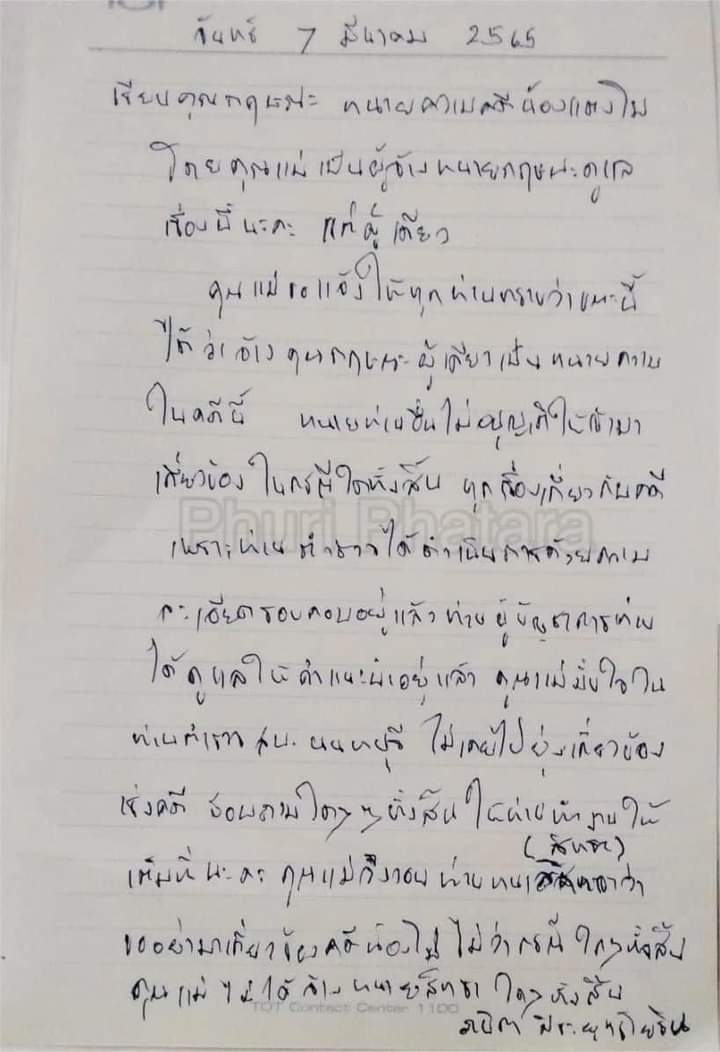 จันทร์ 7 มีนาคม 2565
เรียนคุณกฤษณะ ทนายความคดีน้องแตงโม
โดยคุณแม่เป็นผู้จ้างทนายกฤษณะดูแล
เรื่องนี้นะคะ แต่ผู้เดียว
คุณแม่ขอแจ้งให้ทุกท่านทราบว่าขณะนี้
ได้ว่าจ้างคุณกฤษณะผู้เดียวเป็นทนายความ
ในคดีนี้ ทนายท่านอื่นไม่อนุญาติให้เข้ามา
เกี่ยวข้องในกรณีใดทั้งสิ้น ทุกเรื่องเกี่ยวกับคดี
Phuri Phatara
เพราะท่านตำรวจได้ดำเนินการด้วยความ
ละเอียดรอบคอบอยู่แล้ว ท่านผู้บัญชาการท่าน
ได้ดูแลให้คำแนะนำอยู่แล้ว คุณแม่มั่นใจใน
ท่านตำรวจ สน. นนทบุรี ไม่เคยไปยุ่งเกี่ยวข้อง
เรื่องคดี สอบถามใดๆ ทั้งสิ้น ให้ท่านทำงานให้
(สิทธา)
เต็มที่นะคะ คุณแม่ถึงวอนท่านทน ว่า
ขออย่ามาเกี่ยวข้องคดีน้องโม ไม่ว่ากรณีใดๆทั้งสิ้น
คุณแม่ไม่ได้จ้างทนายสิทธา ใดๆ ทั้งสิ้น
TOT Contact Center 1100
ภนิดา ศิระยุทธโยธิน